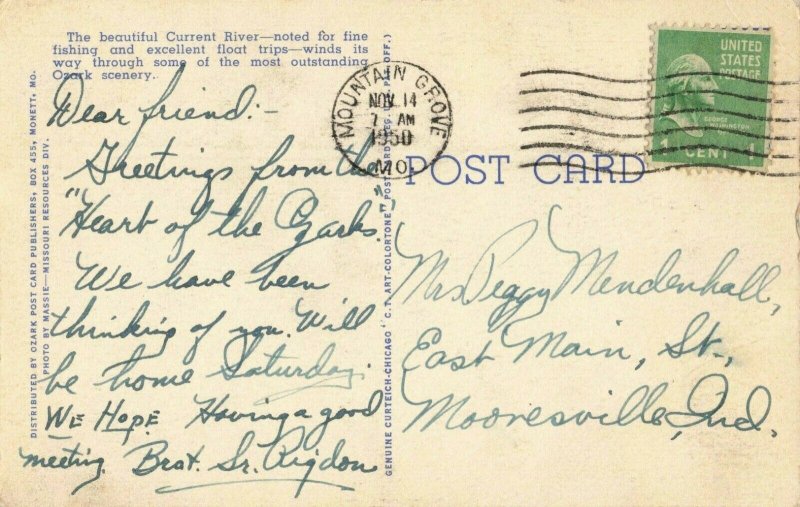 The beautiful Current River—noted for fine
fishing and excellent float trips—winds its
way through some of the most outstanding
Ozark scenery.
Dear friend:-
Greetings from the
"Heart of the Ozarks."
We have been
thinking of you. Will
be home Saturday.
WE HOPE Having a good
meeting. Bro & Sr. Rigdon
DISTRIBUTED BY OZARK POST CARD PUBLISHERS, BOX 455, MONETT, MO.
PHOTO BY MASSIE—MISSOURI RESOURCES DIV.
GENUINE CURTEICH-CHICAGO "C.T. ART-COLORTONE" POST CARD (REG. U.S. PAT. OFF.)
MOUNTAIN GROVE
NOV 14
7 AM
1950
MO.
UNITED
STATES
POSTAGE
GEORGE
WASHINGTON
1 CENT 1
POST CARD
Mrs Peggy Mendenhall,
East Main, St.,
Mooresville, Ind.